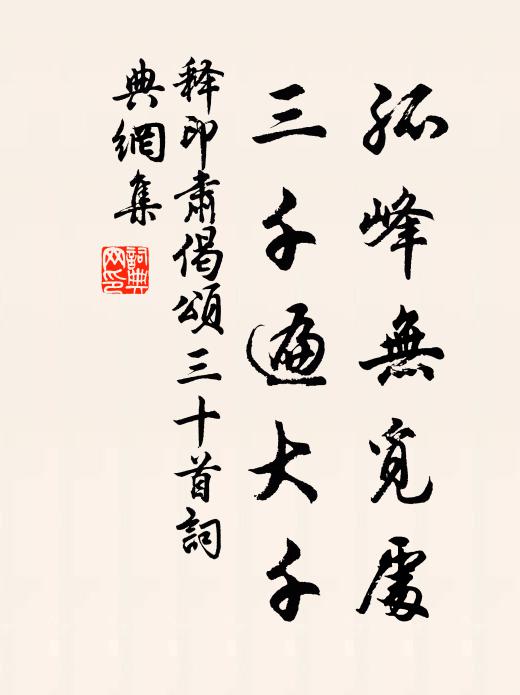 孤峰無覓處
三千遍大千
釋印肅偈頌三十首詞
典網集
詞典网印